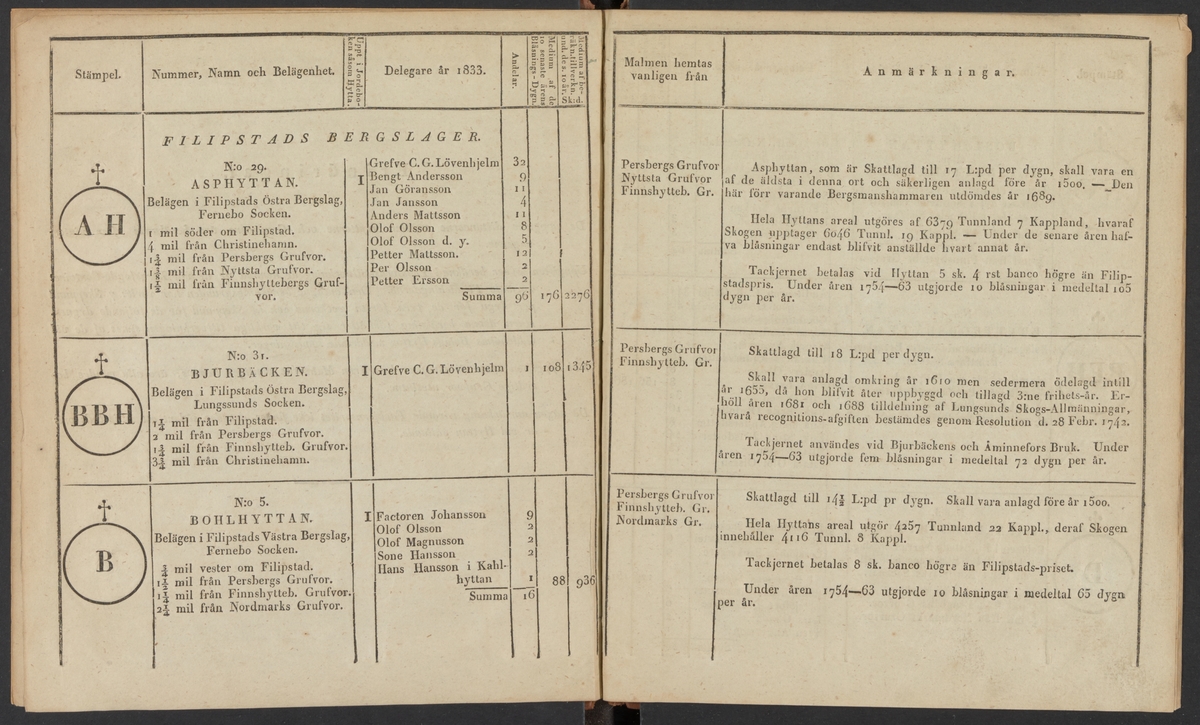 Stämpel.
Nummer, Namn och Belägenhet.
Uppt. i Jordebo-
ken såsom Hytta.
Delegare år 1833.
Andelar.
Medium af de
10 senaste årens
Blåsnings-Dygn.
Medium af be-
räkn. tillverkn.
und. de s. 10 år.
Sk:d.
FILIPSTADS BERGSLAGER.
AH
N:o 29.
ASPHYTTAN.
Belägen i Filipstads Östra Bergslag,
Fernebo Socken.
1 mil söder om Filipstad.
4 mil från Christinehamn.
mil från Persbergs Grufvor.
mil från Nyttsta Grufvor.
1½ mil från Finnshyttebergs Gruf-
vor.
1
Grefve C. G. Lövenhjelm 32
Bengt Andersson 9
Jan Göransson 11
Jan Jansson 4
Anders Mattsson 11
Olof Olsson 8
Olof Olsson d. y. 5
Petter Mattsson. 12
Per Olsson 2
Petter Ersson 2
Summa 96 176 2276
BBH
N:o 31.
BJURBÄCKEN.
Belägen i Filipstads Östra Bergslag,
Lungssunds Socken.
1¼ mil från Filipstad.
2 mil från Persbergs Grufvor.
mil från Finnshytteb. Grufvor.
3¾ mil från Christinehamn.
1 Grefve C. G. Lövenhjelm 1 108 1345
B
N:o 5.
BOHLHYTTAN.
Belägen i Filipstads Västra Bergslag,
Fernebo Socken.
¾ mil vester om Filipstad.
1½ mil från Persbergs Grufvor.
1¼ mil från Finnshytteb. Grufvor.
mil från Nordmarks Grufvor.
1 Factoren Johansson 9
Olof Olsson 2
Olof Magnusson 2
Sone Hansson 2
Hans Hansson i Kahl-
hyttan 1 88 936
Summa 16
Malmen hemtas
vanligen från
Anmärkningar.
Persbergs Grufvor
Nyttsta Grufvor
Finnshytteb. Gr.
Asphyttan, som är Skattlagd till 17 L:pd per dygn, skall vara en
af de äldsta i denna ort och säkerligen anlagd före år 1500. — Den
här förr varande Bergsmanshammaren utdömdes år 1689.
Hela Hyttans areal utgöres af 6379 Tunnland 7 Kappland, hvaraf
Skogen upptager 6046 Tunnl. 19 Kappl. — Under de senare åren haf-
va blåsningar endast blifvit anställde hvart annat år.
Tackjernet betalas vid Hyttan 5 sk. 4 rst banco högre än Filip-
stadspris. Under åren 1754—63 utgjorde 10 blåsningar i medeltal 105
dygn per år.
Persbergs Grufvor
Finnshytteb. Gr.
Skattlagd till 18 L:pd per dygn.
Skall vara anlagd omkring år 1610 men sedermera ödelagd intill
år 1655, då hon blifvit åter uppbyggd och tillagd 3:ne frihets-år. Er-
höll åren 1681 och 1688 tilldelning af Lungsunds Skogs-Allmänningar,
hvarå recognitions-afgiften bestämdes genom Resolution d. 28 Febr. 1742.
Tackjernet användes vid Bjurbäckens och Åminnefors Bruk. Under
åren 1754—63 utgjorde fem blåsningar i medeltal 72 dygn per år.
Persbergs Grufvor
Finnshytteb. Gr.
Nordmarks Gr.
Skattlagd till 14½ L:pd pr dygn. Skall vara anlagd före år 1500.
Hela Hyttans areal utgör 4257 Tunnland 22 Kappl., deraf Skogen
innehåller 4116 Tunnl. 8 Kappl.
Tackjernet betalas 8 sk. banco högre än Filipstads-priset.
Under åren 1754—63 utgjorde 10 blåsningar i medeltal 65 dygn
per år.